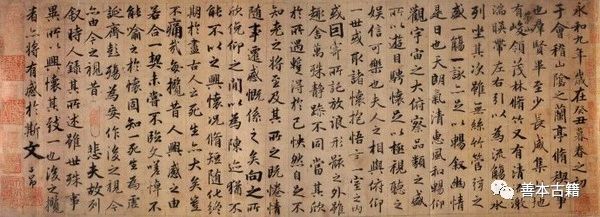 永和九年歲在癸丑暮春之初會
于會稽山陰之蘭亭脩禊事
也羣賢畢至少長咸集此地
有峻領茂林脩竹又有清流激
湍暎帶左右引以為流觴曲水
列坐其次雖無絲竹管弦之
盛一觴一詠亦足以暢敘幽情
是日也天朗氣清惠風和暢仰
觀宇宙之大俯察品類之盛
所以遊目騁懷足以極視聽之
娛信可樂也夫人之相與俯仰
一世或取諸懷抱悟言一室之內
或因寄所託放浪形骸之外雖
趣舍萬殊靜躁不同當其欣
於所遇暫得於己怏然自足不
知老之將至及其所之既惓情
隨事遷感慨係之矣向之所
欣俛仰之間以為陳迹猶不
能不以之興懷況脩短隨化終
期於盡古人云死生亦大矣豈
不痛哉每攬昔人興感之由
若合一契未嘗不臨文嗟悼不
能喻之於懷固知一死生為虛
誕齊彭殤為妄作後之視今
亦由今之視昔悲夫故列
敘時人錄其所述雖世殊事
異所以興懷其致一也後之攬
者亦將有感於斯文子昂
善本古籍